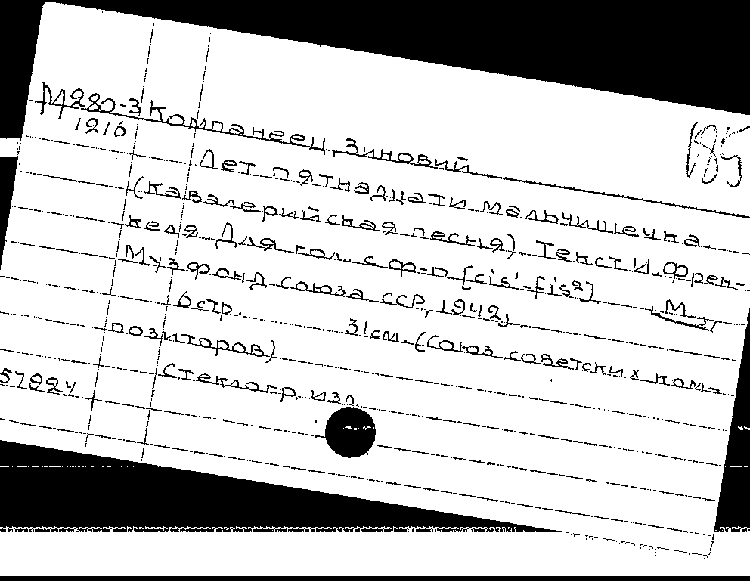 М280-3 Компанеец, Зиновий
1216
185
Лет пятнадцати мальчишечка.
(Кавалерийская песня). Текст И. Френ-
келя Для гол. с ф-п [cis¹-fis²]
М.,
Музфонд союза ССР, 1942,
6стр. 31см. (союз советских ком-
позиторов)
Стеклогр. изд.